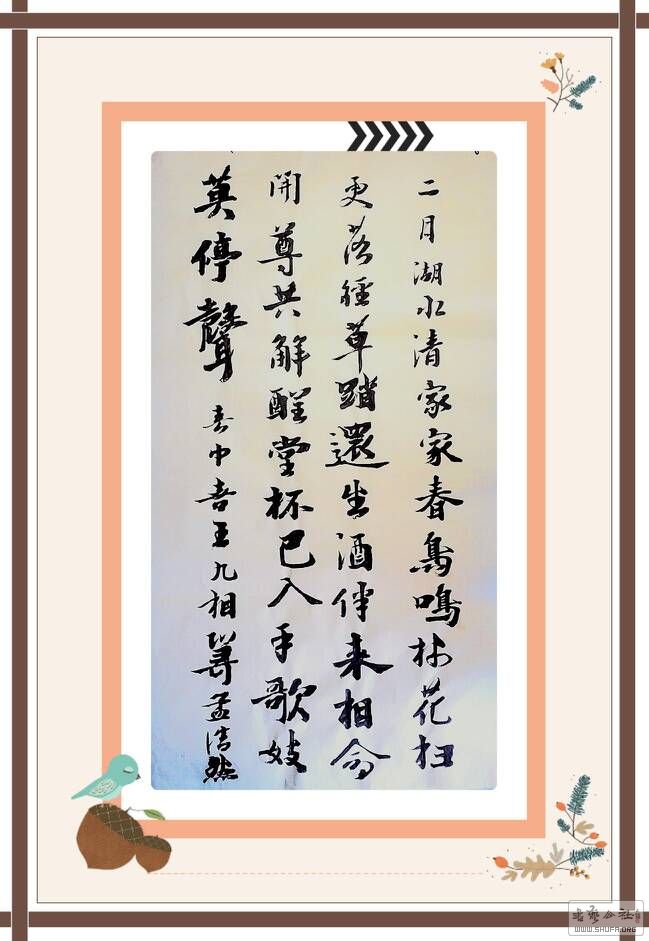 二月湖水清家家春鳥鳴林花扫
更落徑草踏還生酒伴来相命
開尊共解酲堂杯已入手歌妓
莫停聲 春中喜王九相尋孟浩然
書藝公社
WWW.SHUFA.ORG